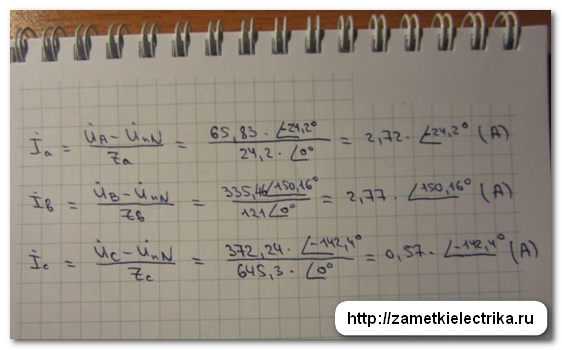 İa = (U̇A − U̇nN) / Za = (65,83 · ∠24,2°) / (24,2 · ∠0°) = 2,72 · ∠24,2° (A)
İB = (U̇B − U̇nN) / ZB = (335,46∠150,16°) / (121∠0°) = 2,77 · ∠150,16° (A)
İc = (U̇C − U̇nN) / Zc = (372,24 · ∠−142,4°) / (645,3 · ∠0°) = 0,57 · ∠−142,4° (A)
http://zametkielectrika.ru